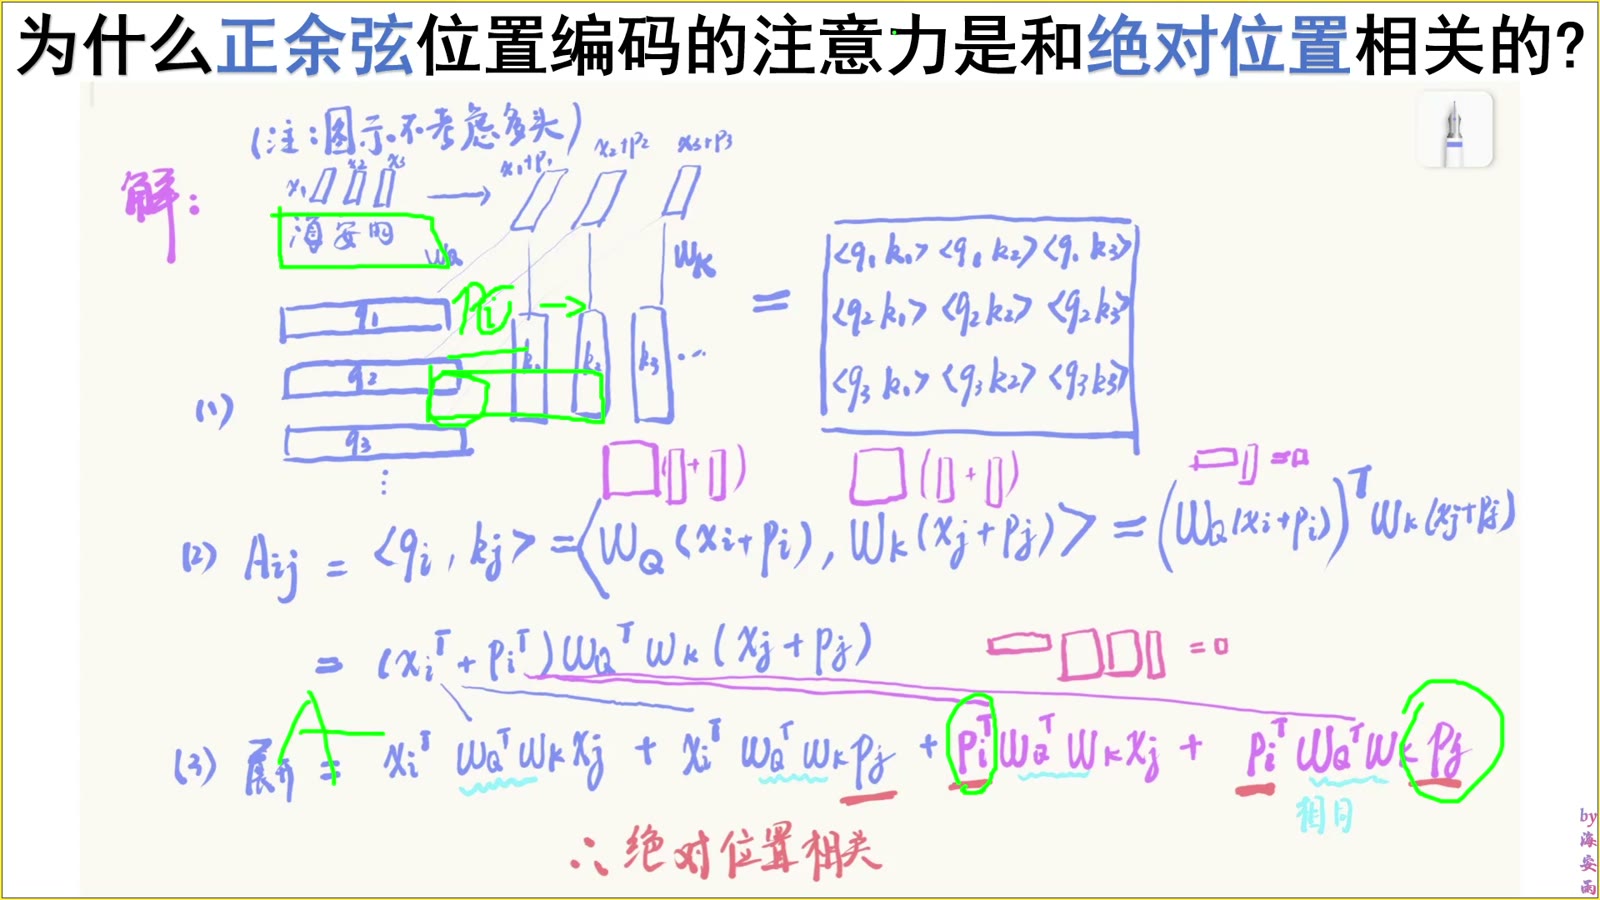 为什么正余弦位置编码的注意力是和绝对位置相关的?
(注:图示不考虑多头)
解:
x₁ x₂ x₃ → x₁+p₁ x₂+p₂ x₃+p₃
海安雨
W_Q W_K
(1)
q₁
q₂
q₃
⋮
k₁ k₂ k₃ ...
=
<q₁ k₁> <q₁ k₂> <q₁ k₃>
<q₂ k₁> <q₂ k₂> <q₂ k₃>
<q₃ k₁> <q₃ k₂> <q₃ k₃>
(2) Aij = <qi, kj> = <W_Q(xi+pi), W_K(xj+pj)> = (W_Q(xi+pi))ᵀ W_K(xj+pj)
= (xiᵀ + piᵀ) W_Qᵀ W_K (xj + pj)
(3) 展开 = xiᵀ W_Qᵀ W_K xj + xiᵀ W_Qᵀ W_K pj + piᵀ W_Qᵀ W_K xj + piᵀ W_Qᵀ W_K pj
相同
∴ 绝对位置相关
by
海
安
雨